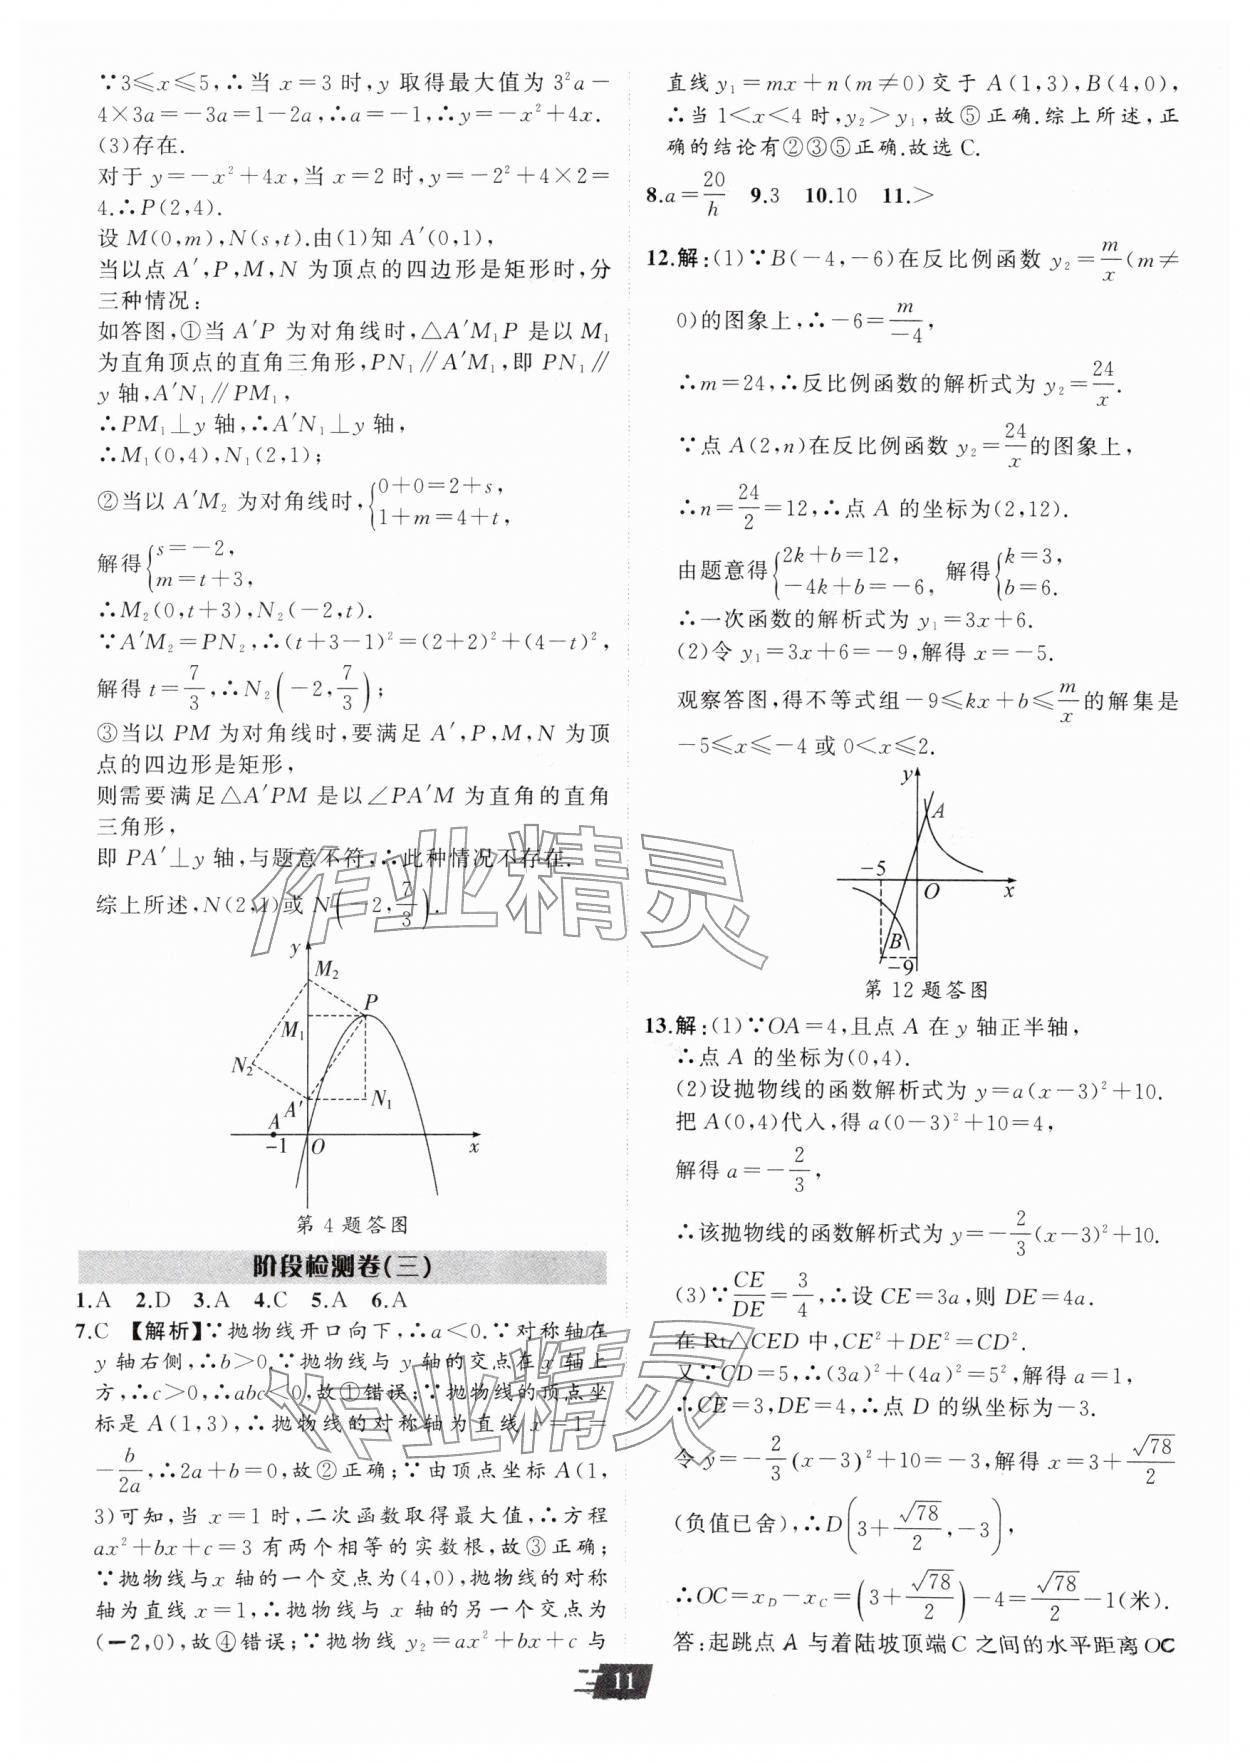 ∵3≤x≤5,∴当 x=3 时,y 取得最大值为 3²a-
4×3a=-3a=1-2a,∴a=-1,∴y=-x²+4x.
(3)存在.
对于 y=-x²+4x,当 x=2 时,y=-2²+4×2=
4.∴P(2,4).
设 M(0,m),N(s,t).由(1)知 A′(0,1),
当以点 A′,P,M,N 为顶点的四边形是矩形时,分
三种情况:
如答图,①当 A′P 为对角线时,△A′M₁P 是以 M₁
为直角顶点的直角三角形,PN₁∥A′M₁,即 PN₁∥
y 轴,A′N₁∥PM₁,
∴PM₁⊥y 轴,∴A′N₁⊥y 轴,
∴M₁(0,4),N₁(2,1);
②当以 A′M₂ 为对角线时,{0+0=2+s,
1+m=4+t,
解得{s=-2,
m=t+3,
∴M₂(0,t+3),N₂(-2,t).
∵A′M₂=PN₂,∴(t+3-1)²=(2+2)²+(4-t)²,
解得 t=7/3,∴N₂(-2,7/3);
③当以 PM 为对角线时,要满足 A′,P,M,N 为顶
点的四边形是矩形,
则需要满足△A′PM 是以∠PA′M 为直角的直角
三角形,
即 PA′⊥y 轴,与题意不符,∴此种情况不存在.
综上所述,N(2,1)或 N(-2,7/3).
y
M₂
P
M₁
N₂
A′
N₁
A
-1 O x
第 4 题答图
阶段检测卷(三)
1.A 2.D 3.A 4.C 5.A 6.A
7.C 【解析】∵抛物线开口向下,∴a<0.∵对称轴在
y 轴右侧,∴b>0.∵抛物线与 y 轴的交点在 x 轴上
方,∴c>0,∴abc<0,故①错误;∵抛物线的顶点坐
标是 A(1,3),∴抛物线的对称轴为直线 x=1=
-b/2a,∴2a+b=0,故②正确;∵由顶点坐标 A(1,
3)可知,当 x=1 时,二次函数取得最大值,∴方程
ax²+bx+c=3 有两个相等的实数根,故③正确;
∵抛物线与x 轴的一个交点为(4,0),抛物线的对称
轴为直线 x=1,∴抛物线与 x 轴的另一个交点为
(-2,0),故④错误;∵抛物线 y₂=ax²+bx+c 与
直线 y₁=mx+n(m≠0)交于 A(1,3),B(4,0),
∴当 1<x<4 时,y₂>y₁,故⑤正确.综上所述,正
确的结论有②③⑤正确.故选 C.
8.a=20/h 9.3 10.10 11.>
12.解:(1)∵B(-4,-6)在反比例函数 y₂=m/x(m≠
0)的图象上,∴-6=m/-4,
∴m=24,∴反比例函数的解析式为 y₂=24/x.
∵点 A(2,n)在反比例函数 y₂=24/x的图象上,
∴n=24/2=12,∴点 A 的坐标为(2,12).
由题意得{2k+b=12,
-4k+b=-6, 解得{k=3,
b=6.
∴一次函数的解析式为 y₁=3x+6.
(2)令 y₁=3x+6=-9,解得 x=-5.
观察答图,得不等式组-9≤kx+b≤m/x的解集是
-5≤x≤-4 或 0<x≤2.
y
A
-5
O x
B
-9
第 12 题答图
13.解:(1)∵OA=4,且点 A 在 y 轴正半轴,
∴点 A 的坐标为(0,4).
(2)设抛物线的函数解析式为 y=a(x-3)²+10.
把 A(0,4)代入,得 a(0-3)²+10=4,
解得 a=-2/3,
∴该抛物线的函数解析式为 y=-2/3(x-3)²+10.
(3)∵CE/DE=3/4,∴设 CE=3a,则 DE=4a.
在 Rt△CED 中,CE²+DE²=CD².
又∵CD=5,∴(3a)²+(4a)²=5²,解得 a=1,
∴CE=3,DE=4,∴点 D 的纵坐标为-3.
令 y=-2/3(x-3)²+10=-3,解得 x=3+√78/2
(负值已舍),∴D(3+√78/2,-3),
∴OC=x_D-x_C=(3+√78/2)-4=√78/2-1(米).
答:起跳点 A 与着陆坡顶端 C 之间的水平距离 OC
11
作业精灵
作业精灵